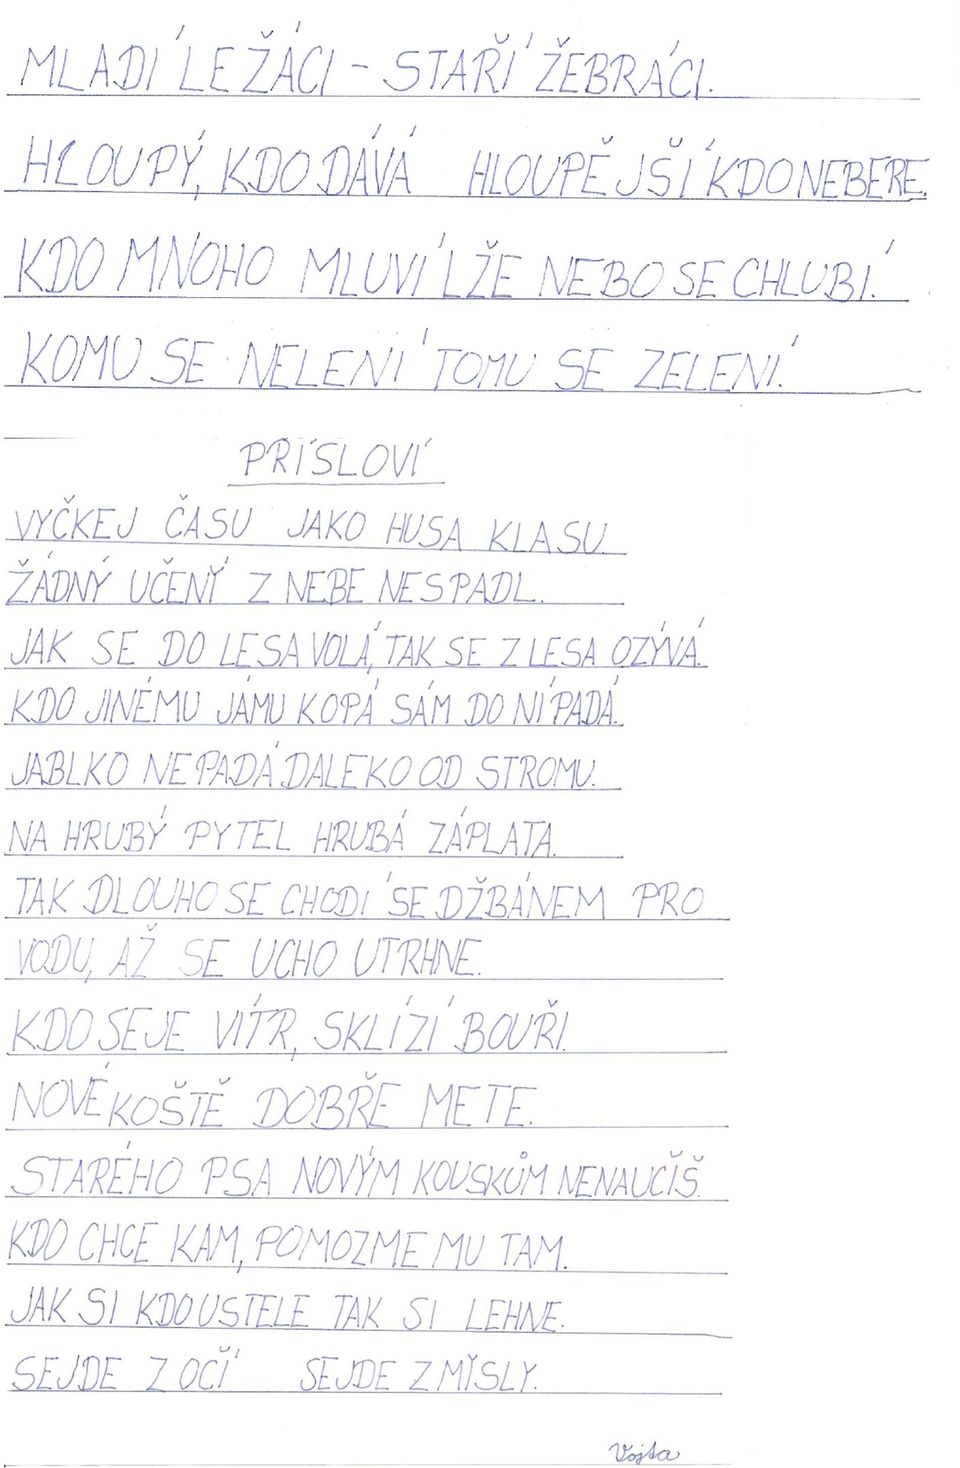 MLADÍ LEŽÁCI - STAŘÍ ŽEBRÁCI.
HLOUPÝ, KDO DÁVÁ HLOUPĚJŠÍ KDO NEBERE.
KDO MNOHO MLUVÍ LŽE NEBO SE CHLUBÍ.
KOMU SE NELENÍ TOMU SE ZELENÍ.
PRÍSLOVÍ
VYČKEJ ČASU JAKO HUSA KLASU.
ŽÁDNÝ UČENÝ Z NEBE NESPADL.
JAK SE DO LESA VOLÁ, TAK SE Z LESA OZÝVÁ.
KDO JINÉMU JÁMU KOPÁ SÁM DO NÍ PADÁ.
JABLKO NEPADÁ DALEKO OD STROMU.
NA HRUBÝ PYTEL HRUBÁ ZÁPLATA.
TAK DLOUHO SE CHODÍ SE DŽBÁNEM PRO
VODU, AŽ SE UCHO UTRHNE.
KDO SEJE VÍTR, SKLÍZÍ BOUŘI.
NOVÉ KOŠTĚ DOBŘE METE.
STARÉHO PSA NOVÝM KOUSKŮM NENAUČÍŠ.
KDO CHCE KAM, POMOZME MU TAM.
JAK SI KDO USTELE TAK SI LEHNE.
SEJDE Z OČÍ SEJDE Z MYSLY.
Vojta